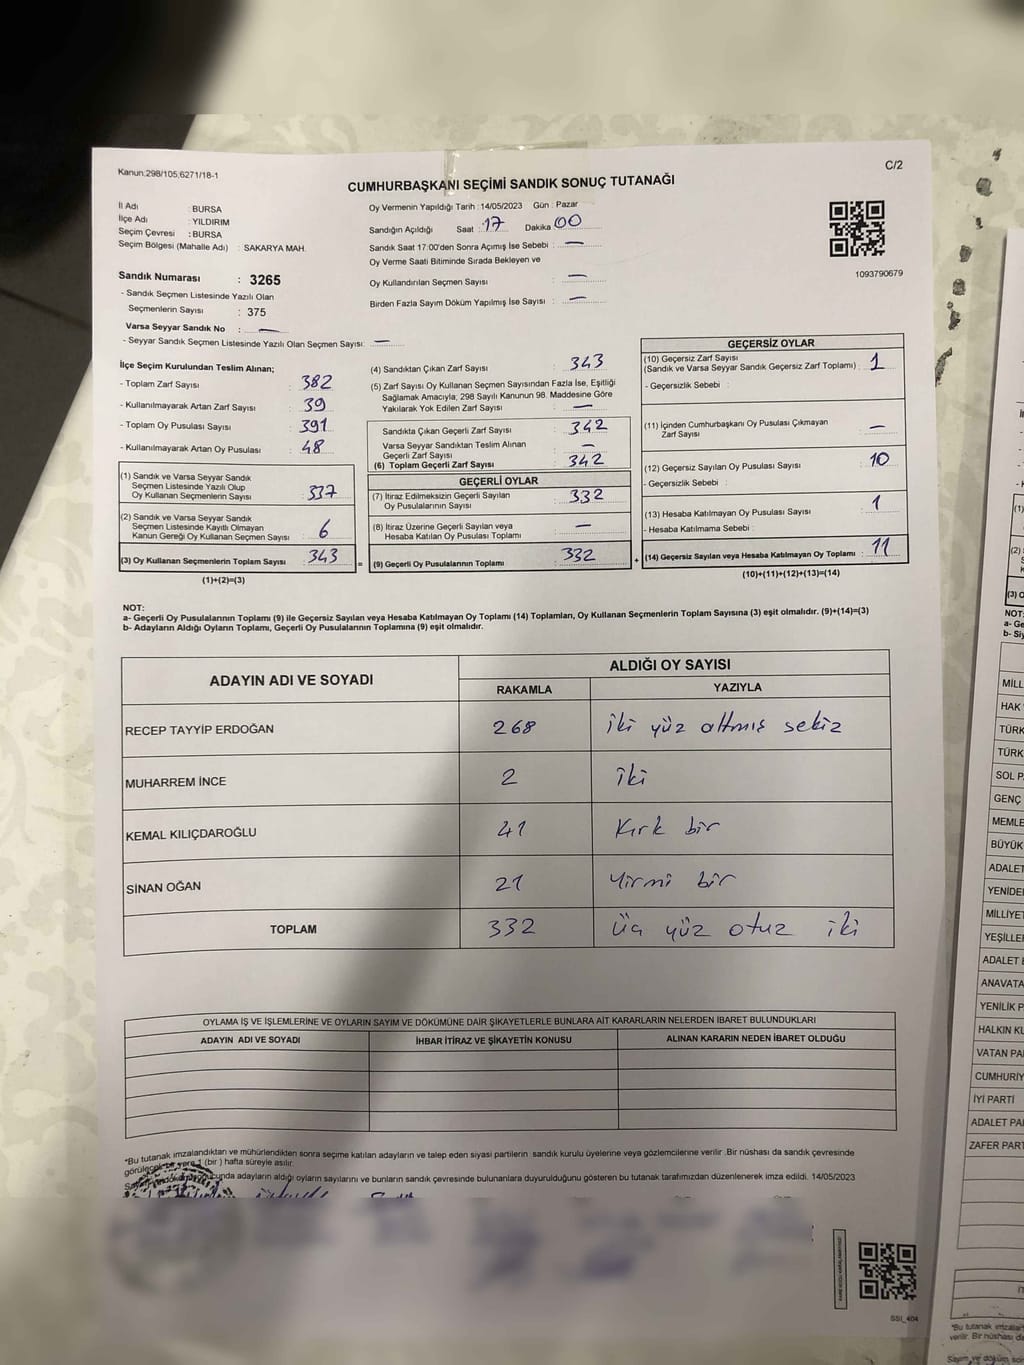 Kanun:298/105;6271/18-1
C/2
CUMHURBAŞKANI SEÇİMİ SANDIK SONUÇ TUTANAĞI
İl Adı : BURSA
İlçe Adı : YILDIRIM
Seçim Çevresi : BURSA
Seçim Bölgesi (Mahalle Adı) : SAKARYA MAH.
Sandık Numarası : 3265
- Sandık Seçmen Listesinde Yazılı Olan
Seçmenlerin Sayısı : 375
Varsa Seyyar Sandık No : —
- Seyyar Sandık Seçmen Listesinde Yazılı Olan Seçmen Sayısı: —
Oy Vermenin Yapıldığı Tarih : 14/05/2023 Gün : Pazar
Sandığın Açıldığı Saat : 17 Dakika 00
Sandık Saat 17:00'den Sonra Açmış İse Sebebi : —
Oy Verme Saati Bitiminde Sırada Bekleyen ve
Oy Kullandırılan Seçmen Sayısı : —
Birden Fazla Sayım Döküm Yapılmış İse Sayısı : —
1093790679
İlçe Seçim Kurulundan Teslim Alınan;
- Toplam Zarf Sayısı : 382
- Kullanılmayarak Artan Zarf Sayısı : 39
- Toplam Oy Pusulası Sayısı : 391
- Kullanılmayarak Artan Oy Pusulası : 48
(1) Sandık ve Varsa Seyyar Sandık
Seçmen Listesinde Yazılı Olup
Oy Kullanan Seçmenlerin Sayısı : 337
(2) Sandık ve Varsa Seyyar Sandık
Seçmen Listesinde Kayıtlı Olmayan
Kanun Gereği Oy Kullanan Seçmen Sayısı : 6
(3) Oy Kullanan Seçmenlerin Toplam Sayısı : 343
(1)+(2)=(3)
(4) Sandıktan Çıkan Zarf Sayısı : 343
(5) Zarf Sayısı Oy Kullanan Seçmen Sayısından Fazla İse, Eşitliği
Sağlamak Amacıyla; 298 Sayılı Kanunun 98. Maddesine Göre
Yakılarak Yok Edilen Zarf Sayısı : —
Sandıkta Çıkan Geçerli Zarf Sayısı : 342
Varsa Seyyar Sandıktan Teslim Alınan
Geçerli Zarf Sayısı : —
(6) Toplam Geçerli Zarf Sayısı : 342
GEÇERLİ OYLAR
(7) İtiraz Edilmeksizin Geçerli Sayılan
Oy Pusulalarının Sayısı : 332
(8) İtiraz Üzerine Geçerli Sayılan veya
Hesaba Katılan Oy Pusulası Toplamı : —
= (9) Geçerli Oy Pusulalarının Toplamı : 332 +
GEÇERSİZ OYLAR
(10) Geçersiz Zarf Sayısı
(Sandık ve Varsa Seyyar Sandık Geçersiz Zarf Toplamı) : 1
- Geçersizlik Sebebi :
(11) İçinden Cumhurbaşkanı Oy Pusulası Çıkmayan
Zarf Sayısı : —
(12) Geçersiz Sayılan Oy Pusulası Sayısı : 10
- Geçersizlik Sebebi :
(13) Hesaba Katılmayan Oy Pusulası Sayısı : 1
- Hesaba Katılmama Sebebi :
(14) Geçersiz Sayılan veya Hesaba Katılmayan Oy Toplamı : 11
(10)+(11)+(12)+(13)=(14)
NOT:
a- Geçerli Oy Pusulalarının Toplamı (9) ile Geçersiz Sayılan veya Hesaba Katılmayan Oy Toplamı (14) Toplamları, Oy Kullanan Seçmenlerin Toplam Sayısına (3) eşit olmalıdır. (9)+(14)=(3)
b- Adayların Aldığı Oyların Toplamı, Geçerli Oy Pusulalarının Toplamına (9) eşit olmalıdır.
ADAYIN ADI VE SOYADI ALDIĞI OY SAYISI
RAKAMLA YAZIYLA
RECEP TAYYİP ERDOĞAN 268 iki yüz altmış sekiz
MUHARREM İNCE 2 iki
KEMAL KILIÇDAROĞLU 41 Kırk bir
SİNAN OĞAN 21 Yirmi bir
TOPLAM 332 üç yüz otuz iki
OYLAMA İŞ VE İŞLEMLERİNE VE OYLARIN SAYIM VE DÖKÜMÜNE DAİR ŞİKAYETLERLE BUNLARA AİT KARARLARIN NELERDEN İBARET BULUNDUKLARI
ADAYIN ADI VE SOYADI İHBAR İTİRAZ VE ŞİKAYETİN KONUSU ALINAN KARARIN NEDEN İBARET OLDUĞU
*Bu tutanak imzalandıktan ve mühürlendikten sonra seçime katılan adayların ve talep eden siyasi partilerin sandık kurulu üyelerine veya gözlemcilerine verilir. Bir nüshası da sandık çevresinde
görülecek bir yere 1 (bir) hafta süreyle asılır.
adayların aldığı oyların sayılarını ve bunların sandık çevresinde bulunanlara duyurulduğunu gösteren bu tutanak tarafımızdan düzenlenerek imza edildi. 14/05/2023
SSI_404
(1)
(2)
(3) O
NOT:
a- Ge
b- Siy
MİLL
HAK
TÜRK
TÜRK
SOL P
GENÇ
MEMLE
BÜYÜK
ADALET
YENİDE
MİLLİYET
YEŞİLLE
ADALET
ANAVATA
YENİLİK P
HALKIN KU
VATAN PA
CUMHURİY
İYİ PARTİ
ADALET PA
ZAFER PART
*Bu tutanak imzalan
verilir. Bir nüshası da
Sayım ve döküm